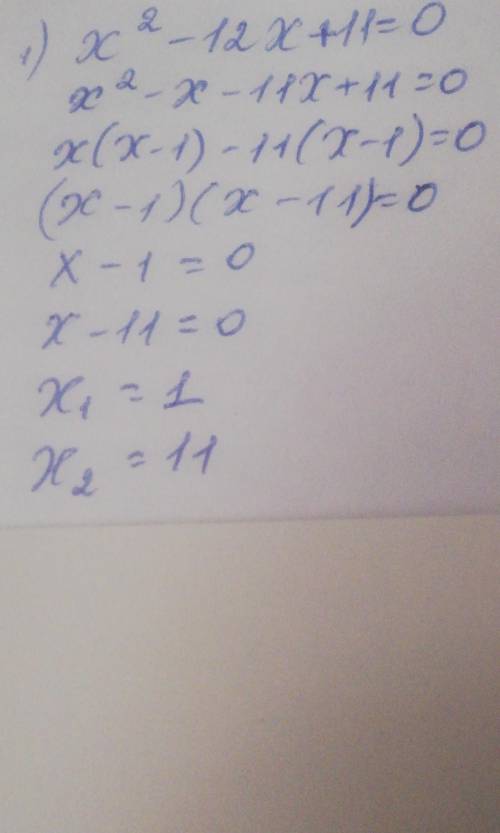 1) x² - 12x + 11 = 0
x² - x - 11x + 11 = 0
x(x - 1) - 11(x - 1) = 0
(x - 1)(x - 11) = 0
x - 1 = 0
x - 11 = 0
x₁ = 1
x₂ = 11